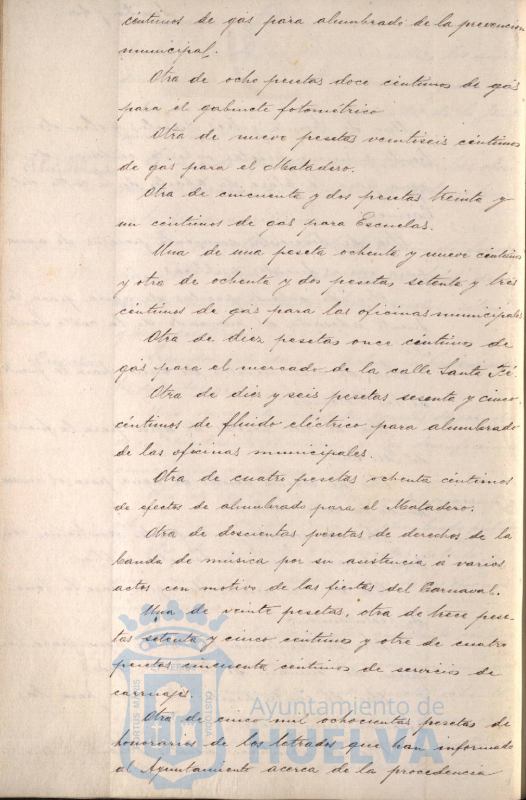 céntimos de gas para alumbrado de la prevención
municipal.
Otra de ocho pesetas doce céntimos de gas
para el gabinete fotométrico
Otra de nueve pesetas veintiseis céntimos
de gas para el Matadero.
Otra de cincuenta y dos pesetas treinta y
un céntimos de gas para Escuelas.
Una de una peseta ochenta y nueve céntimos
y otra de ochenta y dos pesetas setenta y tres
céntimos de gas para las oficinas municipales
Otra de diez pesetas once céntimos de
gas para el mercado de la calle Santa Fé.
Otra de diez y seis pesetas sesenta y cinco
céntimos de fluido eléctrico para alumbrado
de las oficinas municipales.
Otra de cuatro pesetas ochenta céntimos
de efectos de alumbrado para el Matadero.
Otra de doscientas pesetas de derechos de la
banda de música por su asistencia á varios
actos con motivo de las fiestas del Carnaval.
Una de veinte pesetas, otra de trece pese-
tas setenta y cinco céntimos y otra de cuatro
pesetas cincuenta céntimos de servicios de
carruajes.
Otra de cinco mil ochocientas pesetas de
honorarios de los letrados que han informado
al Ayuntamiento acerca de la procedencia
Ayuntamiento de
HUELVA